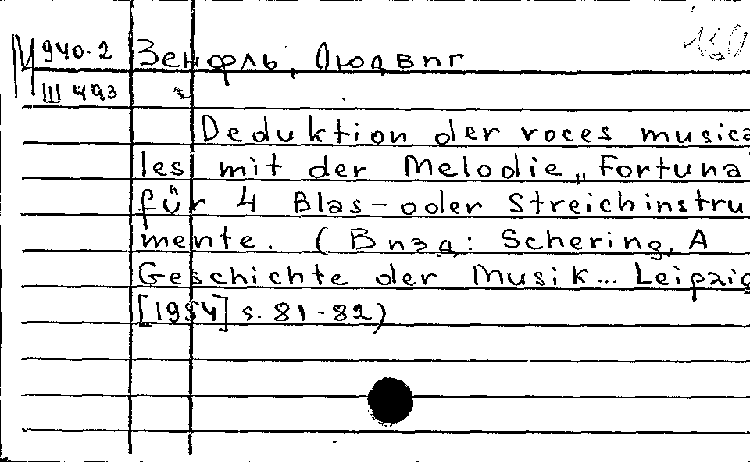 М 940-2 Зенфль, Людвиг
III 493
Deduktion der voces musica
les mit der Melodie „Fortuna
für 4 Blas-oder Streichinstru
mente. (В изд: Schering, A
Geschichte der Musik... Leipzig
[1954] s. 81-82)